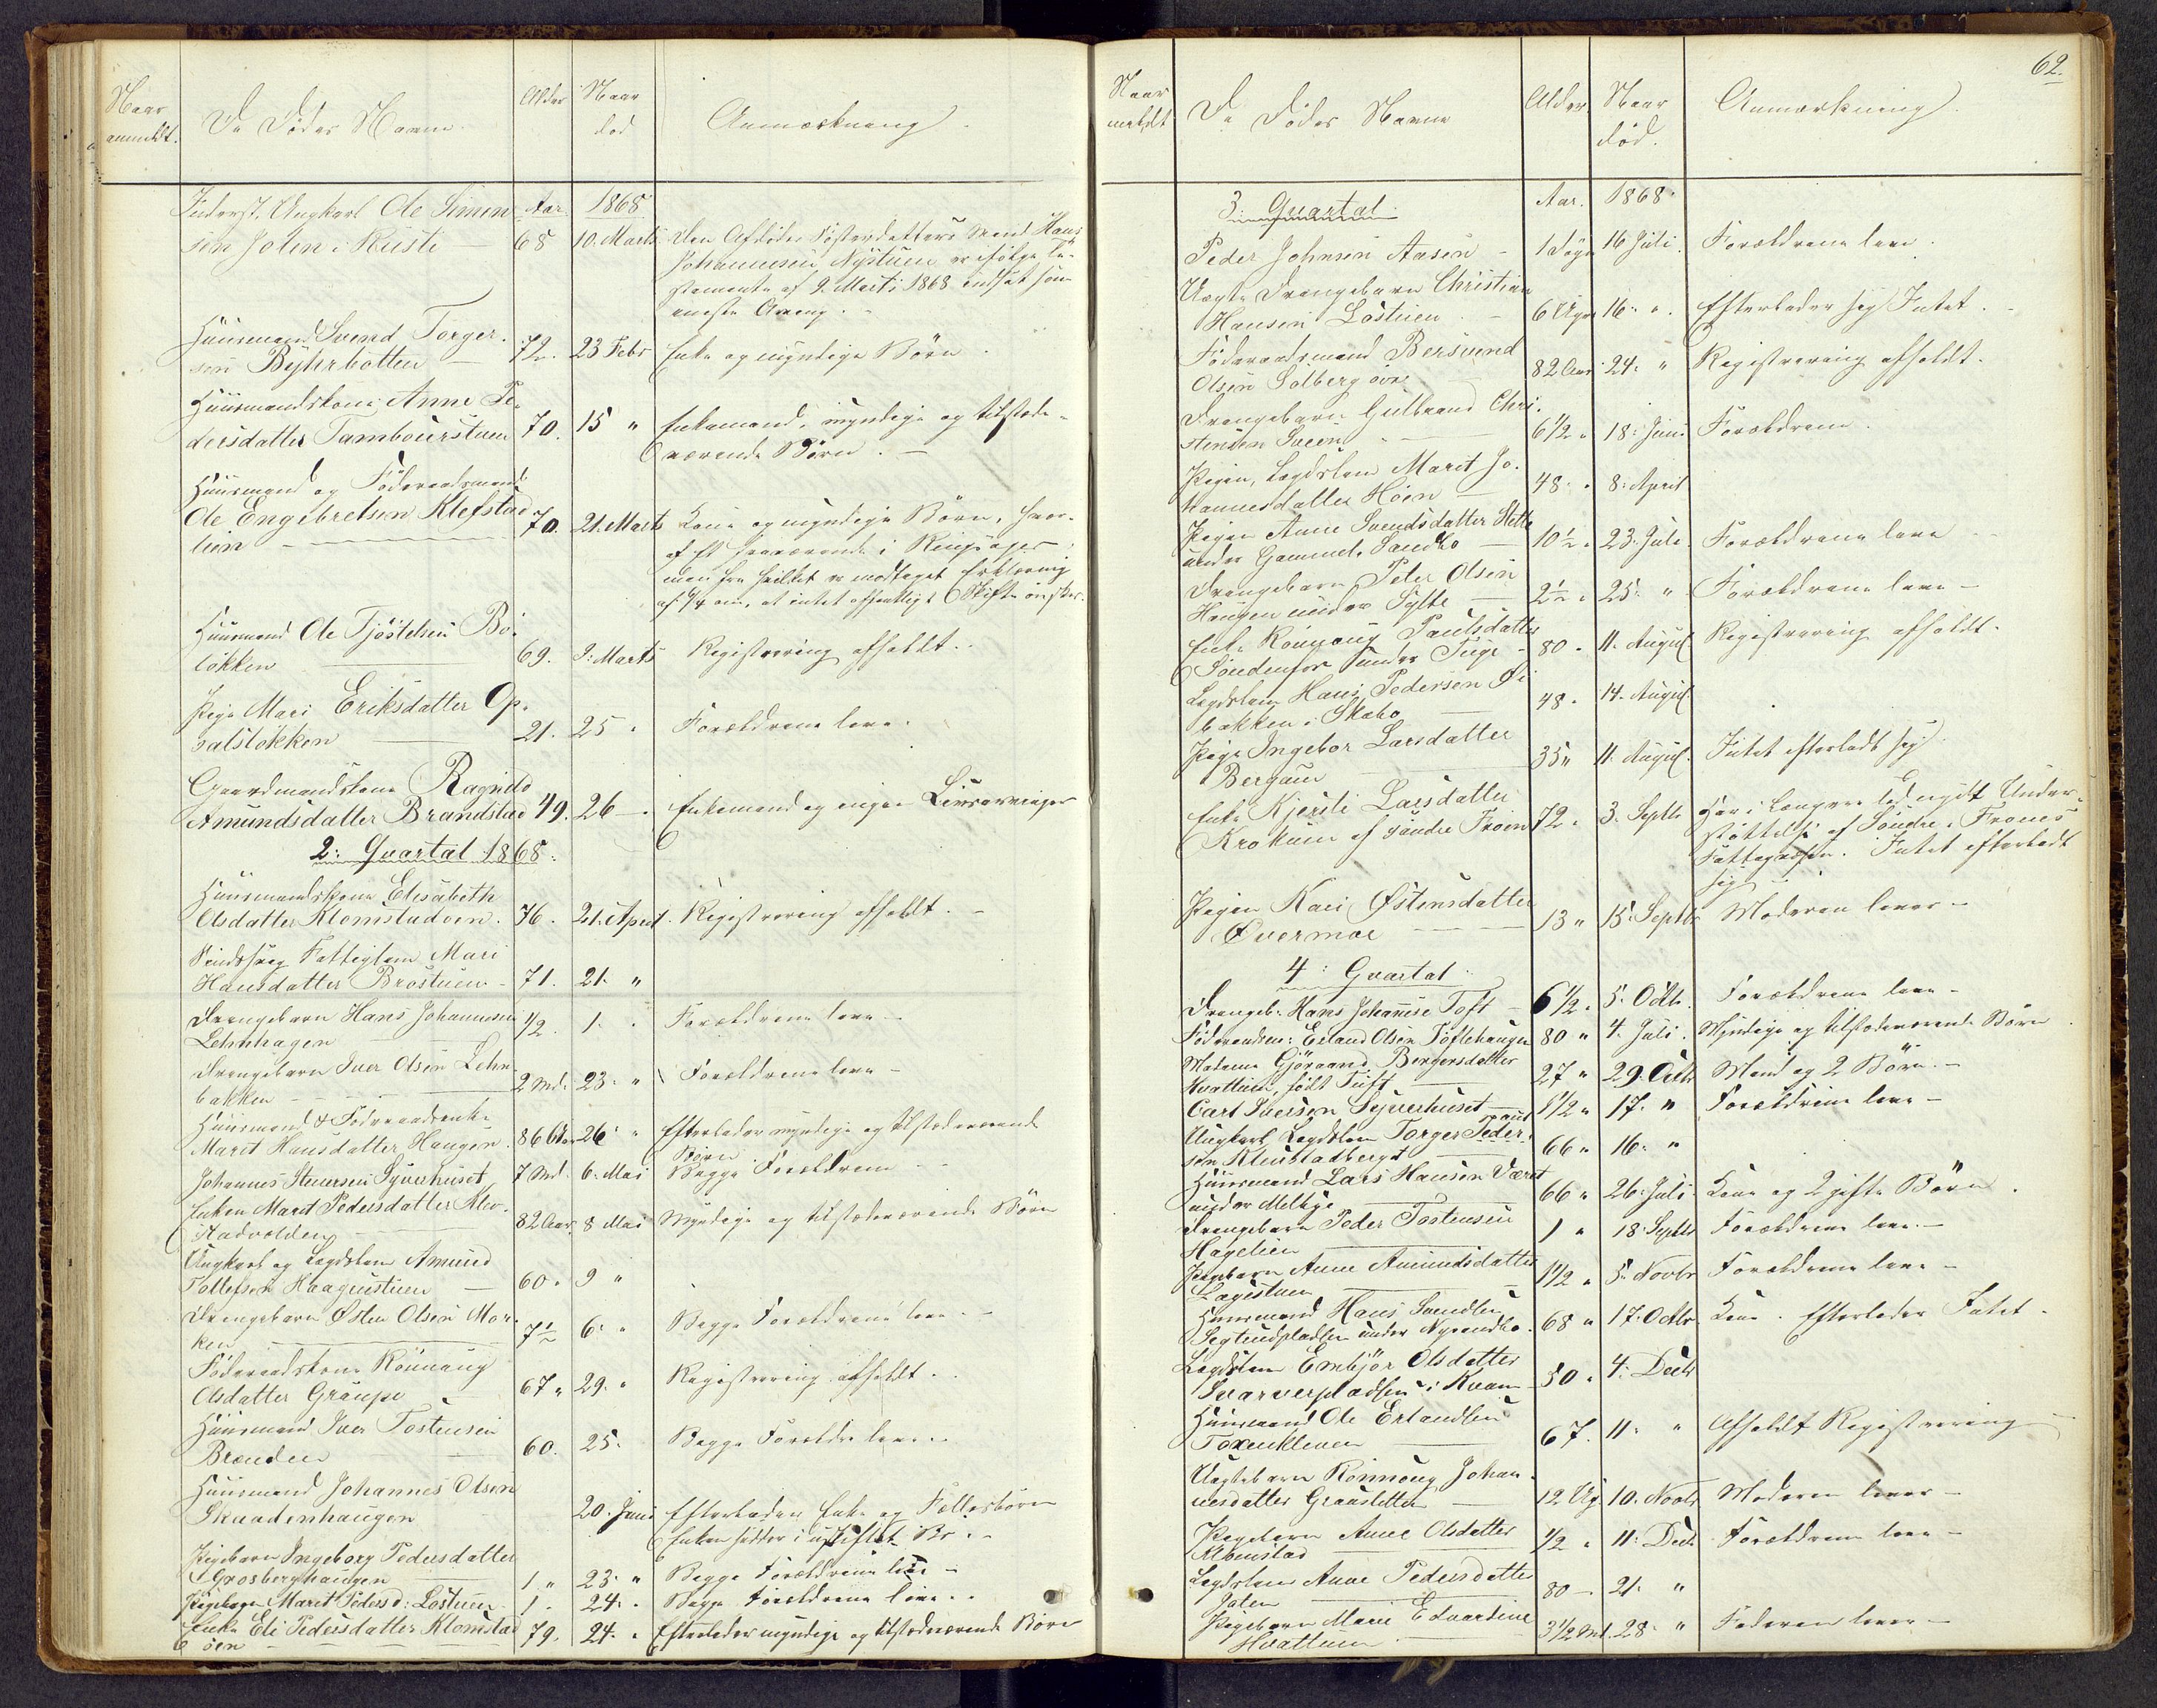 Naar anmeldt. De Dödes Navne. Alder Naar död Anmærkning.
Inderst. Ungkarl Ole Simen Aar 1868
sen Jolen i Ruste 68 10. Marts Den Afdødes Søsterdatters Mand Hans
Johannesen Nystuen er ifølge Te-
stamente af 9. Marts 1868 indsat som
eneste Arving.
Huusmand Svend Torger-
sen Byhrbotten 72. 23 Febr Enke og myndige Börn.
Huusmandskone Anne Pe-
dersdatter Tambourstuen 70. 15 " Enkemand, myndige og tilstede-
værende Börn.
Huusmand og Föderaadsmand
Ole Engebretsen Klefstad
lien 70. 21. Marts Kone og myndige Börn, hvor-
af et fraværende i
men fra hvilket er modtaget Erklæring
af 9/4 om, at intet offentligt Skifte önskes.
Huusmand Ole Tjöstelsen Bö-
lökken 69. 9. Marts Registrering afholdt.
Pige Mari Eriksdatter Op-
salslökken 21. 25 " Forældrene leve.
Gaardmandskone Ragnild
Amundsdatter Brandstad 49. 26 " Enkemand og ingen Livsarvinger
2. Qvartal 1868.
Huusmandskone Elisabeth
Olsdatter Klomstadoen. 76. 21. April. Registrering afholdt.
Sindssvag Fattiglem Mari
Hansdatter Brostuen 71. 21. "
Drengebarn Hans Johannesen
Lehnhagen 1/2 1. " Forældrene leve
Drengebarn Iver Olsen Lehn-
bakken 2 Md. 23. " Forældrene leve
Huusmand & Föderaadsenke
Marit Hansdatter Haugen. 86 Aar 26. " Efterlader myndige og tilstedeværende
Börn
Johannes Steuersen Syverhuset 7 Md. 6. Mai Begge Forældrene
Enken Marit Pedersdatter Klev-
stadvolden 82 Aar. 8 Mai Myndige og tilstedeværende Börn
Ungkarl og Lægdslem Amund
Tollefsen Haagenstuen 60. 9 "
Drengebarn Østen Olsen Mor-
ken 7 1/2 6. " Begge Forældrene leve.
Föderaadskone Rönnaug
Olsdatter Graupe 67 " 29. " Registrering afholdt.
Huusmand Iver Tostensen
Brænden 60. 25. Begge Forældre leve.
Huusmand Johannes Olsen
Skaadenhaugen 20. Juni Efterlader Enke og Fællesbörn
Enken sidder i uskiftet Bo.
Pigebarn Ingeborg Pedersdatter
Grosberghaugen 1 " 23. " Begge Forældrene leve
Pigebarn Marit Pedersd: Lostuen 1. 24. " Begge Forældrene leve.
Enke Eli Pedersdatter Klomstad
öen 79. 24. " Efterlader myndige og tilstedeværende Börn
62.
Naar meldt De Dödes Navne Alder. Naar död. Anmærkning.
3. Qvartal. Aar. 1868.
Peder Johnsen Aasen 1 Dögn 16 Juli. Forældrene leve.
Uægte Drengebarn Christian
Hansen Lostuen 6 Uger 16. " Efterlader sig Intet.
Föderaadsmand Bersvend
Olsen Solberg övre 82 Aar 24. " Registrering afholdt.
Drengebarn Gulbrand Chri-
stensen Sveen 6 1/2 " 18. Juni Forældrene.
Pigen, Lægdslem Marit Jo-
hannesdatter Höen 48. " 8. April
Pigen Anne Svendsdatter Slette
under Gammels Sandbo 10 1/2 " 23. Juli. Forældrene leve
Drengebarn Peter Olsen
Haugen under Sylte 2 1/2 " 25. " Forældrene leve
Enke Rönnaug Paulsdatter
Söndenfor under Teige 80. 11. August Registrering afholdt.
Lægdslem Hans Pedersen Öi-
bakken i Skabo 48. 14. August
Pige Ingebor Larsdatter
Bergum 35 " 11. August. Intet efterladt sig.
Enke Kjersti Larsdatter
Krokum af söndre Froen 72. 3. Septb Har i længere Tid nydt Under-
støttelse af Söndre Frons
Fattigvæsen. Intet efterladt
sig.
Pigen Kari Østensdatter
Övermoe 13 " 15. Septb. Moderen lever
4. Qvartal.
Drengeb. Hans Johannese Toft 6 1/2 " 5. Octb. Forældrene leve
Föderaadsm: Erland Olsen Töftehaugen 80 " 4. Juli. Myndige og tilstedeværende Börn
Madame Gjöraand Bergersdatter
Hvattum, födt Tuft 27 " 29. Octb Mand og 2 Börn.
Carl Iversen Syverhuset 1 1/2 " 17. " Forældrene leve
Ungkarl Lægdslem Torger Peder-
sen Klevstadberget 66 " 16. "
Huusmand Lars Hansen Været
under Melbye 66 " 26. Juli. Kone og 2 gifte Börn.
Drengebarn Peder Tostensen
Hagelien 1 " 18. Septb. Forældrene leve.
Pigebarn Anne Amundsdatter
Lagestuen 1 1/2 " 5. Novbr Forældrene leve
Huusmand Hans Svendsen
Segtunpladsen under Nysandbo. 68 " 17. Octbr Kone. Efterlader Intet.
Lægdslem Embjör Olsdatter
Svarverpladsen i Kvam 50. 4. Decb
Huusmand Ole Erlandsen
Toxenkleven 67. 11. " Afholdt Registrering
Uægtebarn Rönnoug Johan-
nesdatter Graasletten 12 Ug 10. Novbr Moderen lever
Pigebarn Anne Olsdatter
Klomstad 1/2 " 11. Decb. Forældrene leve
Lægdslem Anne Pedersdatter
Jolen 80 21. "
Pigebarn Marie Edvardine
Hvattum 3 1/2 Md. 28. " Faderen lever